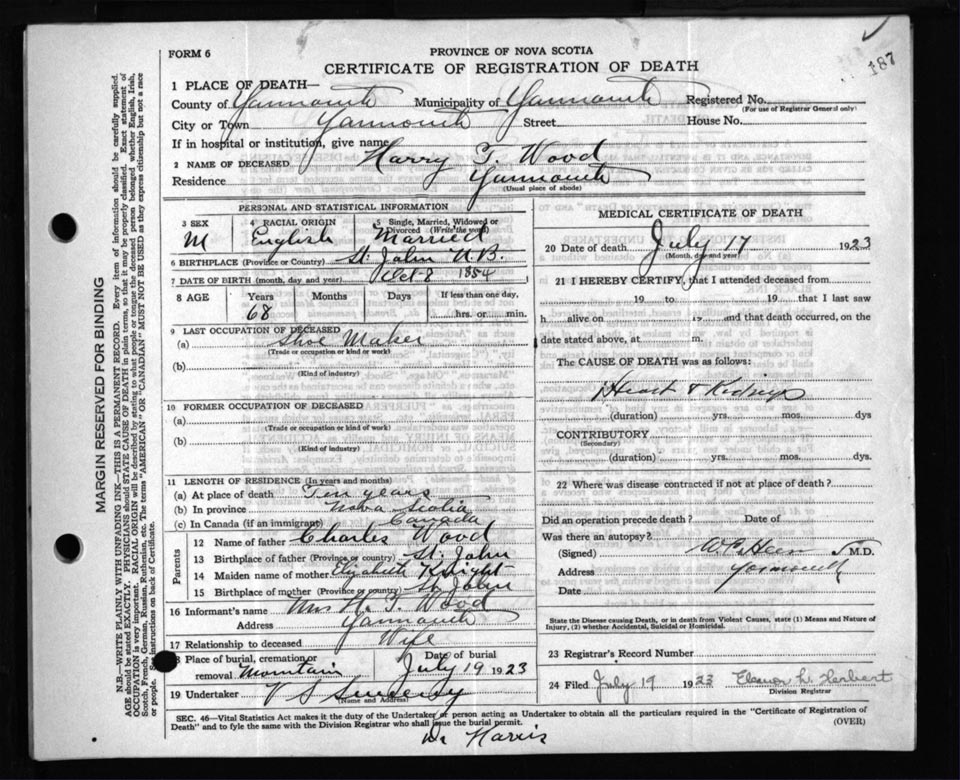 187
FORM 6
PROVINCE OF NOVA SCOTIA
CERTIFICATE OF REGISTRATION OF DEATH
1 PLACE OF DEATH—
County of Yarmouth Municipality of Yarmouth Registered No.
(For use of Registrar General only)
City or Town Yarmouth Street House No.
If in hospital or institution, give name
2 NAME OF DECEASED Harry T. Wood
Residence Yarmouth
(Usual place of abode)
PERSONAL AND STATISTICAL INFORMATION
3 SEX 4 RACIAL ORIGIN 5 Single, Married, Widowed or Divorced (Write the word)
M English Married
6 BIRTHPLACE (Province or Country) St. John N.B.
7 DATE OF BIRTH (month, day and year) Oct-8 1854
8 AGE Years Months Days If less than one day,
68 hrs. or min.
9 LAST OCCUPATION OF DECEASED
(a) Shoe Maker
(Trade or occupation or kind or work)
(b)
(Kind of industry)
10 FORMER OCCUPATION OF DECEASED
(a)
(Trade or occupation or kind of work)
(b)
(Kind of industry)
11 LENGTH OF RESIDENCE (In years and months)
(a) At place of death Ten years
(b) In province Nova Scotia
(c) In Canada (if an immigrant) Canada
Parents
12 Name of father Charles Wood
13 Birthplace of father (Province or country) St. John
14 Maiden name of mother Elizabeth Knight
15 Birthplace of mother (Province or country) St John
16 Informant's name Mrs H. T. Wood
Address Yarmouth
17 Relationship to deceased Wife
Place of burial, cremation or removal Mountain Date of burial July 19 1923
19 Undertaker V S Sweeny
(Name and Address)
MEDICAL CERTIFICATE OF DEATH
20 Date of death July 17 1923
(Month, day and year)
21 I HEREBY CERTIFY, that I attended deceased from
19 to 19 that I last saw
h alive on 19 and that death occurred, on the
date stated above, at m.
The CAUSE OF DEATH was as follows:
Heart & Kidneys
(duration) yrs. mos. dys
CONTRIBUTORY
(Secondary)
(duration) yrs. mos. dys.
22 Where was disease contracted if not at place of death?
Did an operation precede death? Date of
Was there an autopsy?
(Signed) M.D.
Address Yarmouth
Date
State the Disease causing Death, or in death from Violent Causes, state (1) Means and Nature of
Injury, (2) whether Accidental, Suicidal or Homicidal.
23 Registrar's Record Number
24 Filed July 19 1923 Eleanor L. Herbert
Division Registrar
SEC. 46—Vital Statistics Act makes it the duty of the Undertaker or person acting as Undertaker to obtain all the particulars required in the "Certificate of Registration of
Death" and to fyle the same with the Division Registrar who shall issue the burial permit. (OVER)
Dr Harris
MARGIN RESERVED FOR BINDING
N.B.—WRITE PLAINLY WITH UNFADING INK—THIS IS A PERMANENT RECORD. Every item of information should be carefully supplied.
AGE should be stated EXACTLY. PHYSICIANS should STATE CAUSE OF DEATH in plain terms, so that it may be properly classified. Exact statement of
OCCUPATION is very important. RACIAL ORIGIN will be described by stating to what people or tongue the deceased person belonged whether English, Irish,
Scotch, French, German, Russian, Ruthenian, etc. The terms "AMERICAN" OR "CANADIAN" MUST NOT BE USED as they express citizenship but not a race
or people. See instructions on back of Certificate.